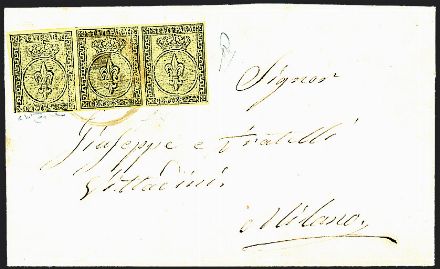 Signor
Giuseppe e Fratelli
Vittadini
Milano